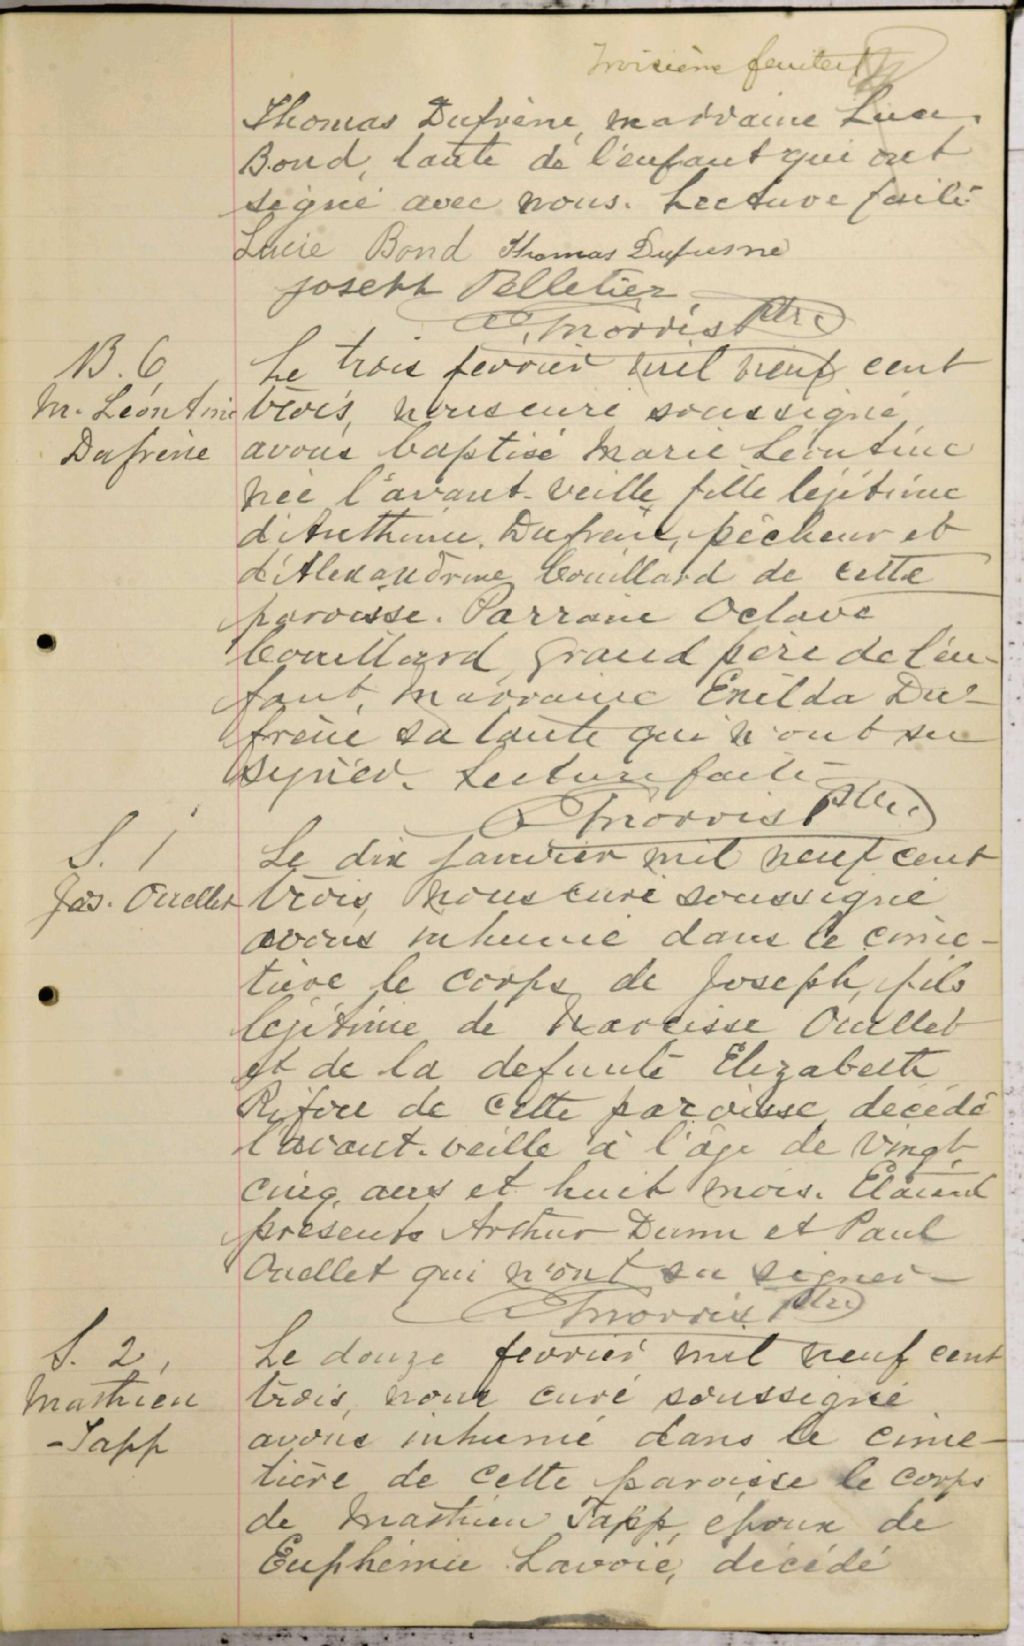 Troisième feuillet
Thomas Dufrène, marraine Lucie
Bond, tante de l'enfant qui ont
signé avec nous. Lecture faite
Lucie Bond Thomas Dufresne
Joseph Pelletier
Morris Ptre
B. 6
M. Léontine
Dufrène
Le trois fevrier mil neuf cent
trois, nous curé soussigné
avons baptisé Marie Léontine
née l'avant-veille fille légitime
d'Anthime Dufrène, pêcheur et
d'Alexandrine Couillard de cette
paroisse. Parrain Octave
Couillard grand père de l'en-
fant, marraine Exilda Du-
frène sa tante qui n'ont su
signer. Lecture faite
Morris Ptre
S. 1
Jos. Ouellet
Le dix janvier mil neuf cent
trois, nous curé soussigné
avons inhumé dans le cime-
tière le corps de Joseph, fils
légitime de Narcisse Ouellet
et de la defunte Elizabeth
de cette paroisse, décédé
l'avant-veille à l'âge de vingt
cinq ans et huit mois. Etaient
présents Arthur Dunn et Paul
Ouellet qui n'ont su signer -
Morris Ptre
S. 2,
Mathieu
-Tapp
Le douze fevrier mil neuf cent
trois, nous curé soussigné
avons inhumé dans le cime-
tière de cette paroisse le corps
de Mathieu Tapp, époux de
Euphémie Lavoie, décédé